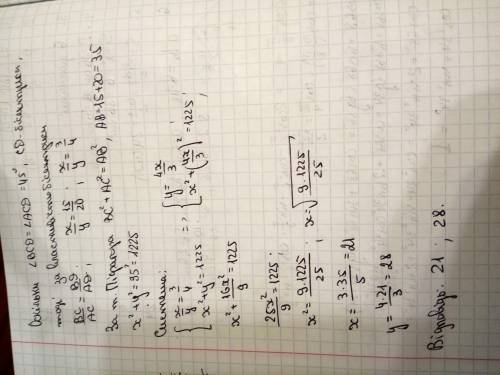 Оскільки ∠BCD = ∠ACD = 45°, CD - бісектриса,
тоді за властивістю бісектриси
BC/AC = BD/AD; x/y = 15/20; x/y = 3/4
За т. Піфагора BC² + AC² = AB², AB = 15+20 = 35
x² + y² = 35 = 1225
Система:
{ x/y = 3/4 => { y = 4x/3
x² + y² = 1225 x² + (4x/3)² = 1225;
x² + 16x²/9 = 1225
25x²/9 = 1225;
x² = 9·1225/25; x = √(9·1225/25);
x = 3·35/5 = 21
y = 4·21/3 = 28
Відповідь: 21; 28.